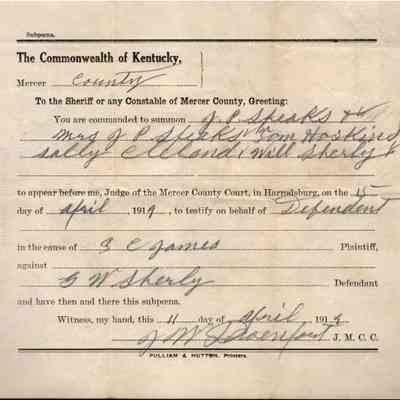 Subpoena.
The Commonwealth of Kentucky,
Mercer County
To the Sheriff or any Constable of Mercer County, Greeting:
You are commanded to summon J. P. Speaks &
Mrs J P Speaks Tom Hoskins
Sally Will Sherly
to appear before me, Judge of the Mercer County Court, in Harrodsburg, on the 15
day of April, 1919, to testify on behalf of Defendent
in the cause of S C James Plaintiff,
against
G W Sherly Defendant
and have then and there this subpoena.
Witness, my hand, this 11 day of April 1919
J. M. C. C.
PULLIAM & HUTTON, Printers.